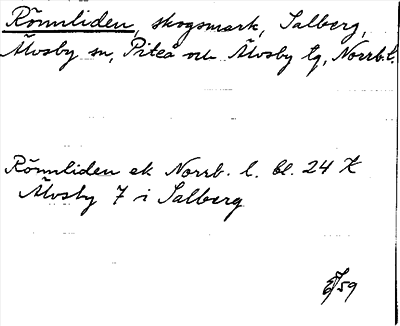 Rönnliden, skogsmark, Salberg,
Älvsby sn, Piteå o. Älvsby lg, Norrb. l.
Rönnliden ek Norrb. l. bl. 24 K
Älvsby 7 i Salberg
59